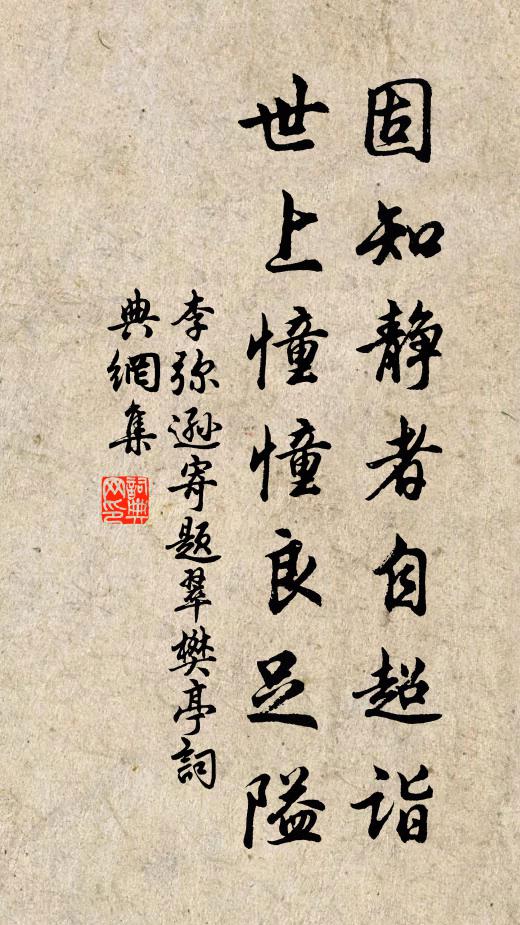 固知静者自超诣
世上憧憧良足隘
李弥逊寄题翠樊亭词
典網集
詞典
网印